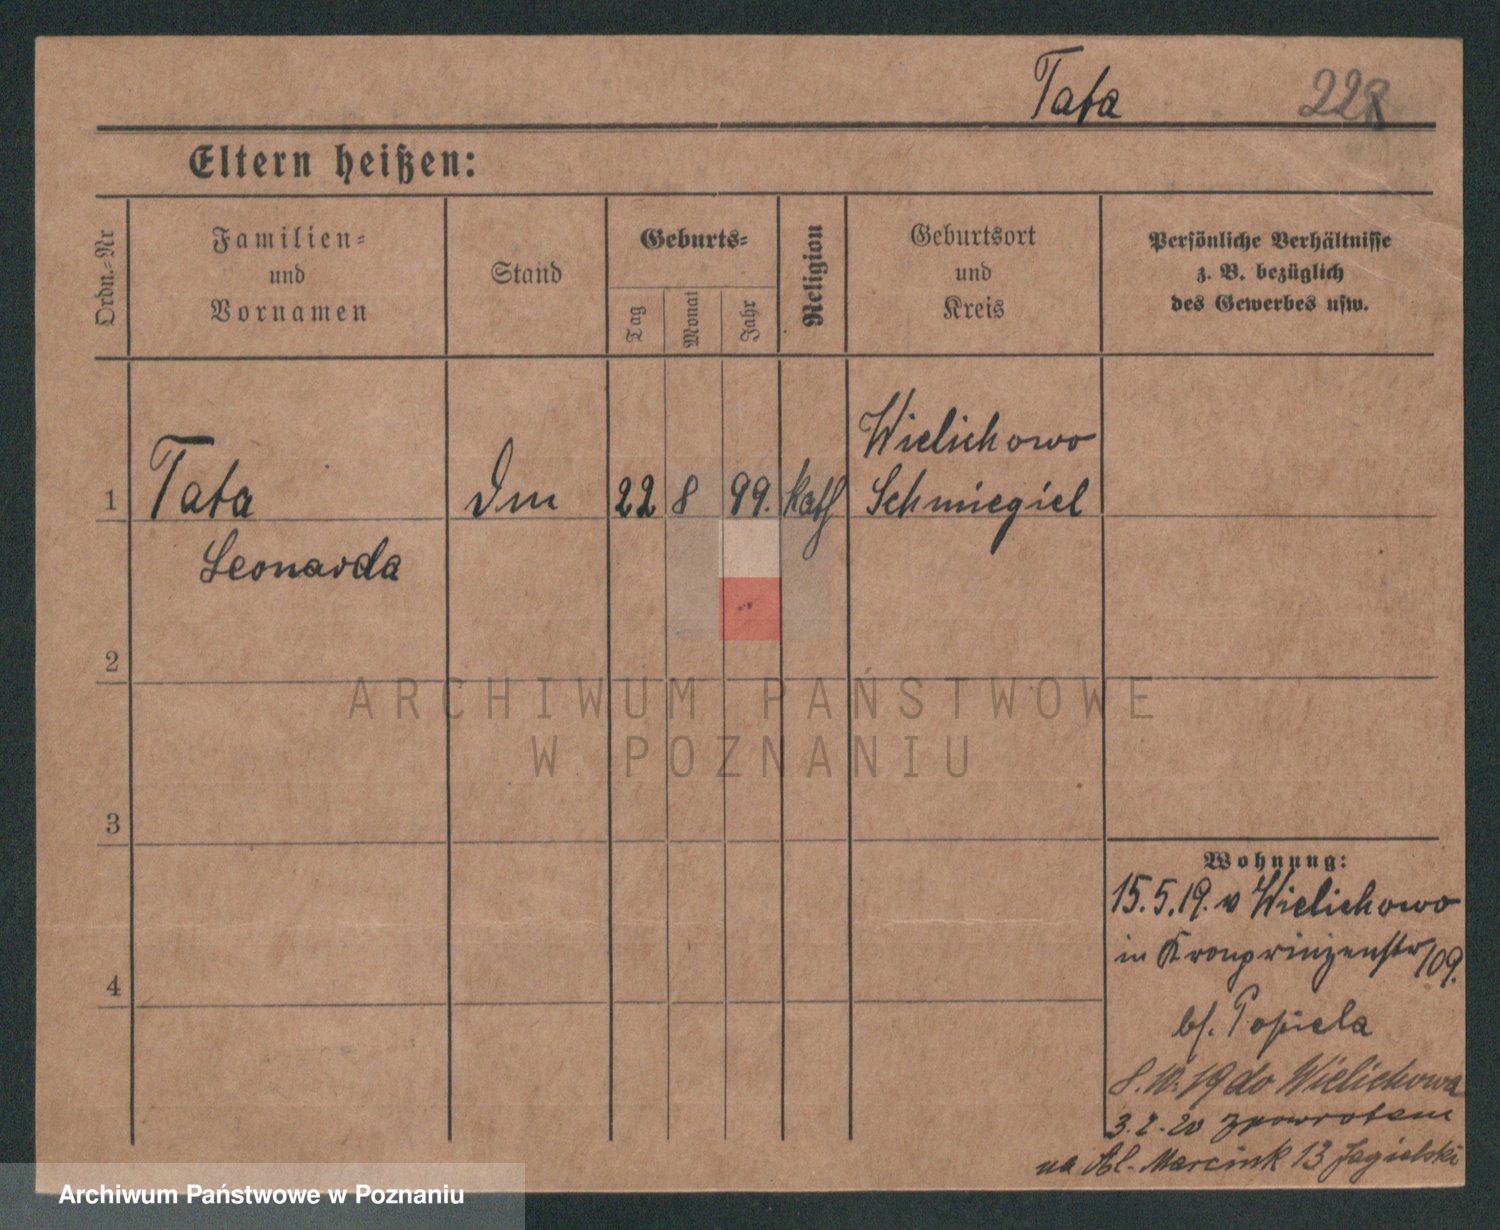 Tata 228
Eltern heißen:
Ordn.-Nr
Familien-
und
Vornamen
Stand
Geburts-
Tag
Monat
Jahr
Religion
Geburtsort
und
Kreis
Persönliche Verhältnisse
z. B. bezüglich
des Gewerbes usw.
Wielichowo
1 Tata 22 8 99. kath Schmiegiel
Leonarda
2
ARCHIWUM PAŃSTWOWE
W POZNANIU
3
Wohnung:
15.5.19. v Wielichowo
in Kronprinzenstr 109.
4
bf. Popiela
8.10.19 do Wielichowa
3.2.20 zpowrotem
na Al. Marcink 13 Jagielski
Archiwum Państwowe w Poznaniu